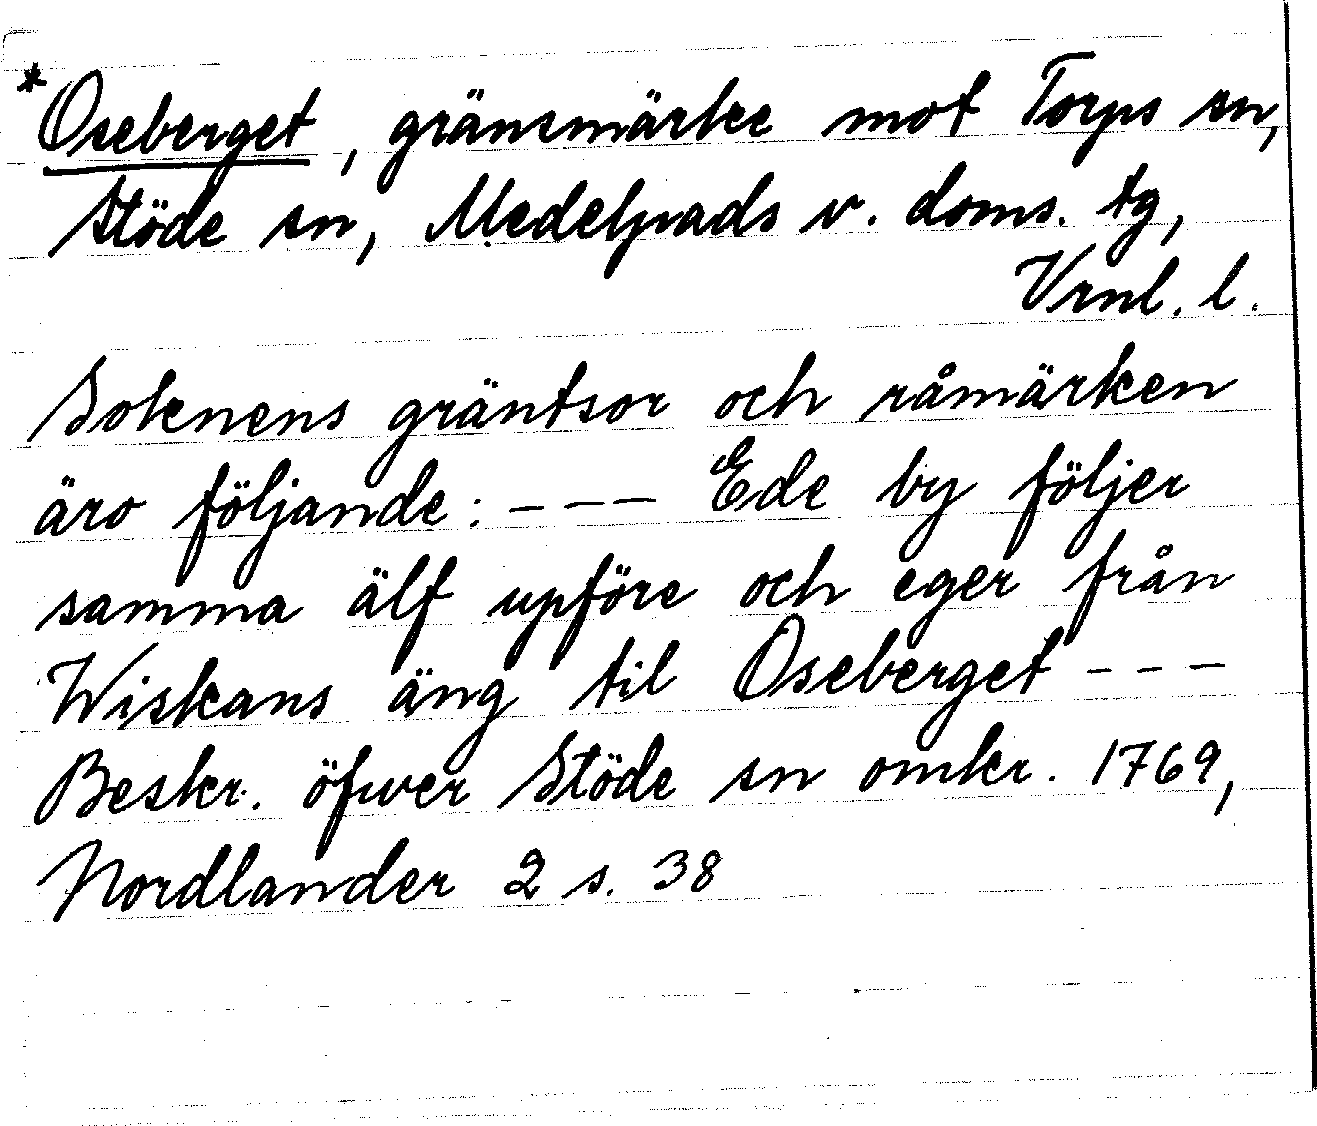 *Oseberget, gränsmärke mot Torps sn,
Stöde sn, Medelpads v. doms. tg,
Vrnl. l.
Soknens gräntsor och råmärken
äro följande: – – – Ede by följer
samma älf upföre och eger från
Wiskans äng til Oseberget – – –
Beskr. öfwer Stöde sn omkr. 1769,
Nordlander 2 s. 38